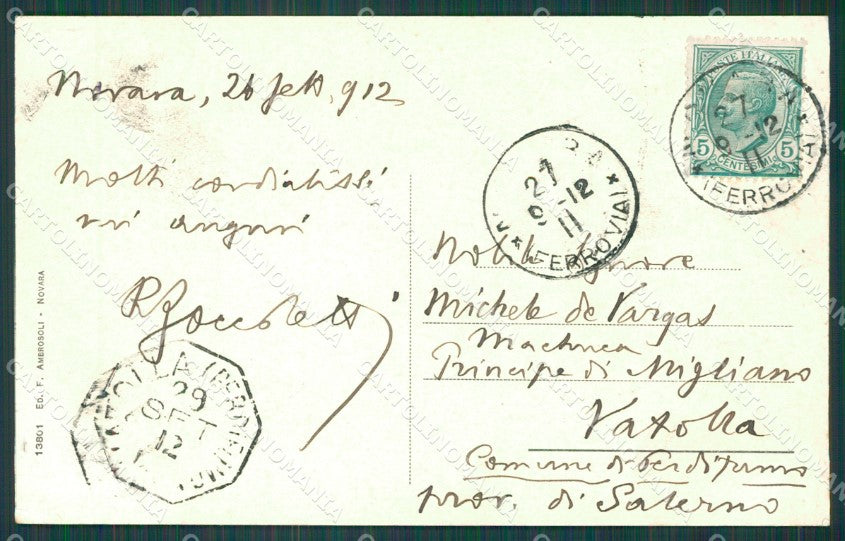 Novara, 26 Sett. 912
Molti cordialissi
mi auguri
13801 ED. F. AMBROSOLI - NOVARA
VATOLLA (PERDIFUMO)
29
SET
12
RA
27
9-12
11
(FERROVIA)
POSTE ITALIANE
5 CENTESIMI 5
NOVARA
27
9-12
11
(FERROVIA)
Nobile Signore
Michele de Vargas
Machuca
Principe di Migliano
Vatolla
Comune di Perdifumo
prov. di Salerno
CARTOLINOMANIA